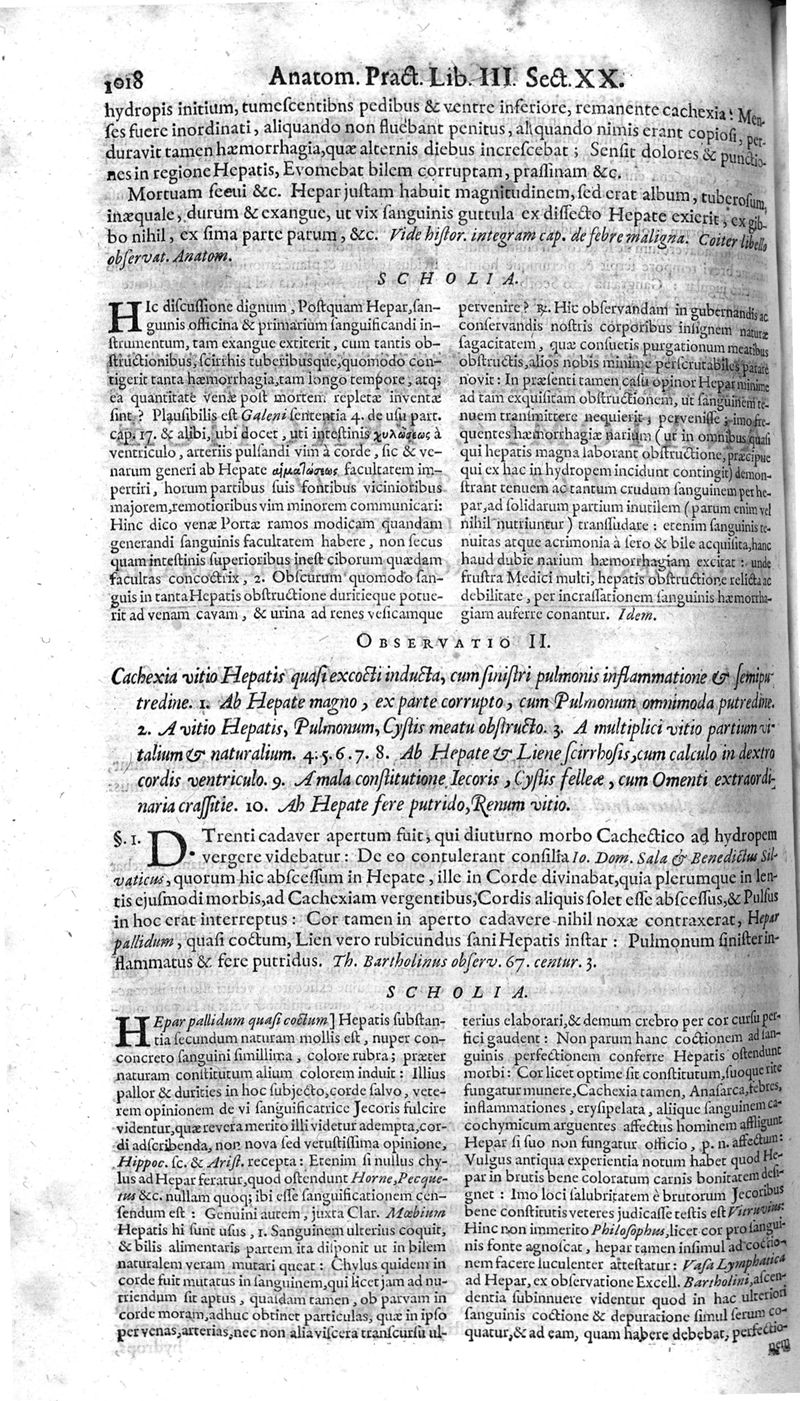 1018 Anatom. Pract. Lib. III. Sect. XX.
hydropis initium, tumeſcentibns pedibus & ventre inferiore, remanente cachexia: Men-
ſes fuere inordinati, aliquando non fluebant penitus, aliquando nimis erant copioſi, per-
duravit tamen hæmorrhagia, quæ alternis diebus increſcebat; Senſit dolores & punctio-
nes in regione Hepatis, Evomebat bilem corruptam, praſſinam &c.
Mortuam ſecui &c. Hepar juſtam habuit magnitudinem, ſed erat album, tuberoſum,
inæquale, durum & exangue, ut vix ſanguinis guttula ex diſſecto Hepate exierit, ex gib-
bo nihil, ex ſima parte parum, &c. Vide hiſtor. integram cap. de febre maligna. Coiter libello
obſervat. Anatom.
SCHOLIA.
HIc diſcuſſione dignum, Poſtquam Hepar, ſan-
guinis officina & primarium ſanguificandi in-
ſtrumentum, tam exangue extiterit, cum tantis ob-
ſtructionibus, ſcirrhis tuberibusque, quomodo con-
tigerit tanta hæmorrhagia, tam longo tempore, atq;
ea quantitate venæ poſt mortem repletæ inventæ
ſint? Plauſibilis eſt Galeni ſententia 4. de uſu part.
cap. 17. & alibi, ubi docet, uti inteſtinis χυλώσεως à
ventriculo, arteriis pulſandi vim à corde, ſic & ve-
narum generi ab Hepate αἱματώσεως facultatem im-
pertiri, horum partibus ſuis fontibus vicinioribus
majorem, remotioribus vim minorem communicari:
Hinc dico venæ Portæ ramos modicam quandam
generandi ſanguinis facultatem habere, non ſecus
quam inteſtinis ſuperioribus ineſt ciborum quædam
facultas concoctrix, 2. Obſcurum quomodo ſan-
guis in tanta Hepatis obſtructione duritieque potue-
rit ad venam cavam, & urina ad renes veſicamque
pervenire? ℞. Hic obſervandam in gubernandis ac
conſervandis noſtris corporibus inſignem naturæ
ſagacitatem, quæ conſuetis purgationum meatibus
obſtructis, alios nobis minime perſcrutabiles parare
novit: In præſenti tamen caſu opinor Hepar minime
ad tam exquiſitam obſtructionem, ut ſanguinem te-
nuem tranſmittere nequierit, perveniſſe; imo fre-
quentes hæmorrhagiæ narium (ut in omnibus quaſi
qui hepatis magna laborant obſtructione, præcipue
qui ex hac in hydropem incidunt contingit) demon-
ſtrant tenuem ac tantum crudum ſanguinem per he-
par, ad ſolidarum partium inutilem (parum enim vel
nihil nutriuntur) tranſſudare: etenim ſanguinis te-
nuitas atque acrimonia à ſero & bile acquiſita, hanc
haud dubie narium hæmorrhagiam excitat: unde
fruſtra Medici multi, hepatis obſtructione relicta ac
debilitate, per incraſſationem ſanguinis hæmorrha-
giam auferre conantur. Idem.
OBSERVATIO II.
Cachexia vitio Hepatis quaſi excocti inducta, cum ſiniſtri pulmonis inflammatione & ſemipu-
tredine. 1. Ab Hepate magno, ex parte corrupto, cum Pulmonum omnimoda putredine.
2. A vitio Hepatis, Pulmonum, Cyſtis meatu obſtructo. 3. A multiplici vitio partium vi-
talium & naturalium. 4. 5. 6. 7. 8. Ab Hepate & Liene ſcirrhoſis, cum calculo in dextro
cordis ventriculo. 9. A mala conſtitutione Iecoris, Cyſtis felleæ, cum Omenti extraordi-
naria craſſitie. 10. Ab Hepate fere putrido, Renum vitio.
§. 1. D. Trenti cadaver apertum fuit, qui diuturno morbo Cachectico ad hydropem
vergere videbatur: De eo contulerant conſilia Io. Dom. Sala & Benedictus Sil-
vaticus, quorum hic abſceſſum in Hepate, ille in Corde divinabat, quia plerumque in len-
tis ejuſmodi morbis, ad Cachexiam vergentibus, Cordis aliquis ſolet eſſe abſceſſus, & Pulſus
in hoc erat interreptus: Cor tamen in aperto cadavere nihil noxæ contraxerat, Hepar
pallidum, quaſi coctum, Lien vero rubicundus ſani Hepatis inſtar: Pulmonum ſiniſter in-
flammatus & fere putridus. Th. Bartholinus obſerv. 67. centur. 3.
SCHOLIA.
HEpar pallidum quaſi coctum] Hepatis ſubſtan-
tia ſecundum naturam mollis eſt, nuper con-
concreto ſanguini ſimillima, colore rubra; præter
naturam conſtitutum alium colorem induit: Illius
pallor & durities in hoc ſubjecto, corde ſalvo, vete-
rem opinionem de vi ſanguificatrice Jecoris fulcire
videntur, quæ revera merito illi videtur adempta, cor-
di adſcribenda, non nova ſed vetuſtiſſima opinione,
Hippoc. ſc. & Ariſt. recepta: Etenim ſi nullus chy-
lus ad Hepar feratur, quod oſtendunt Horne, Pecque-
tus &c. nullam quoq; ibi eſſe ſanguificationem cen-
ſendum eſt: Genuini autem, juxta Clar. Mœbium
Hepatis hi ſunt uſus, 1. Sanguinem ulterius coquit,
& bilis alimentaris partem ita diſponit ut in bilem
naturalem veram mutari queat: Chylus quidem in
corde fuit mutatus in ſanguinem, qui licet jam ad nu-
triendum ſit aptus, quaſdam tamen, ob parvam in
corde moram, adhuc obtinet particulas, quæ in ipſo
per venas, arterias, nec non alia viſcera tranſcurſu ul-
terius elaborari, & demum crebro per cor curſu per-
fici gaudent: Non parum hanc coctionem ad ſan-
guinis perfectionem conferre Hepatis oſtendunt
morbi: Cor licet optime ſit conſtitutum, ſuoque rite
fungatur munere, Cachexia tamen, Anaſarca, febres,
inflammationes, eryſipelata, aliique ſanguinem ca-
cochymicum arguentes affectus hominem affligunt
Hepar ſi ſuo non fungatur officio, p. n. affectum:
Vulgus antiqua experientia notum habet quod He-
par in brutis bene coloratum carnis bonitatem deſi-
gnet: Imo loci ſalubritatem è brutorum Jecoribus
bene conſtitutis veteres judicaſſe teſtis eſt Vitruvius:
Hinc non immerito Philoſophus, licet cor pro ſangui-
nis fonte agnoſcat, hepar tamen inſimul ad coctio-
nem facere luculenter atteſtatur: Vaſa Lymphatica
ad Hepar, ex obſervatione Excell. Bartholini, aſcen-
dentia ſubinnuere videntur quod in hac ulteriori
ſanguinis coctione & depuratione ſimul ſerum co-
quatur, & ad eam, quam habere debebat, perfectio-
nem